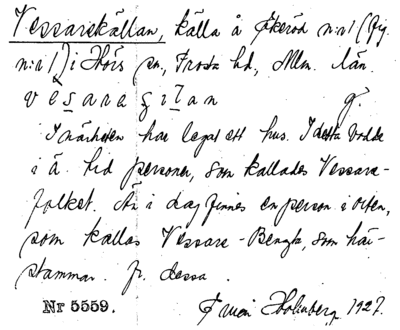 Vessarekällan, källa å Äkeröd n:r 1 (Fig.
n:r 1) i Hörs sn, Frosta hd, Mlm. län.
vęsarašịlan g.
I närheten har legat ett hus. I detta bodde
i ä. tid personer, som kallades Vessare-
folket. Än i dag finnes en person i orten,
som kallas Vessare-Bengta, som här-
stammar fr. dessa.
Nr 5559. Ingemar Holmberg 1927.